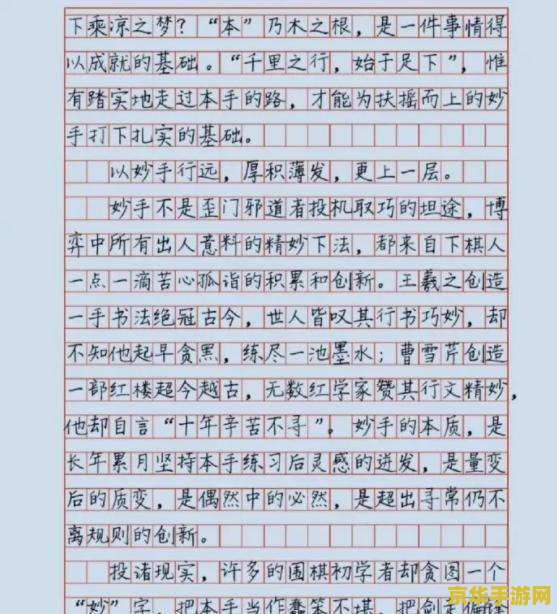 下乘凉之梦？“本”乃木之根，是一件事情得
以成就的基础。“千里之行，始于足下”，惟
有踏实地走过本手的路，才能为扶摇而上的妙
手打下扎实的基础。
以妙手行远，厚积薄发，更上一层。
妙手不是歪门邪道者投机取巧的坦途，博
弈中所有出人意料的精妙下法，都来自下棋人
一点一滴苦心孤诣的积累和创新。王羲之创造
一手书法绝冠古今，世人皆叹其行书巧妙，却
不知他起早贪黑，练尽一池墨水；曹雪芹创造
一部红楼超今越古，无数红学家赞其行文精妙，
他却自言“十年辛苦不寻”。妙手的本质，是
长年累月坚持本手练习后灵感的迸发，是量变
后的质变，是偶然中的必然，是超出寻常仍不
离规则的创新。
投诸现实，许多的围棋初学者却贪图一个
“妙”字，把本手当作蠢笨不堪，把创
京华手游网